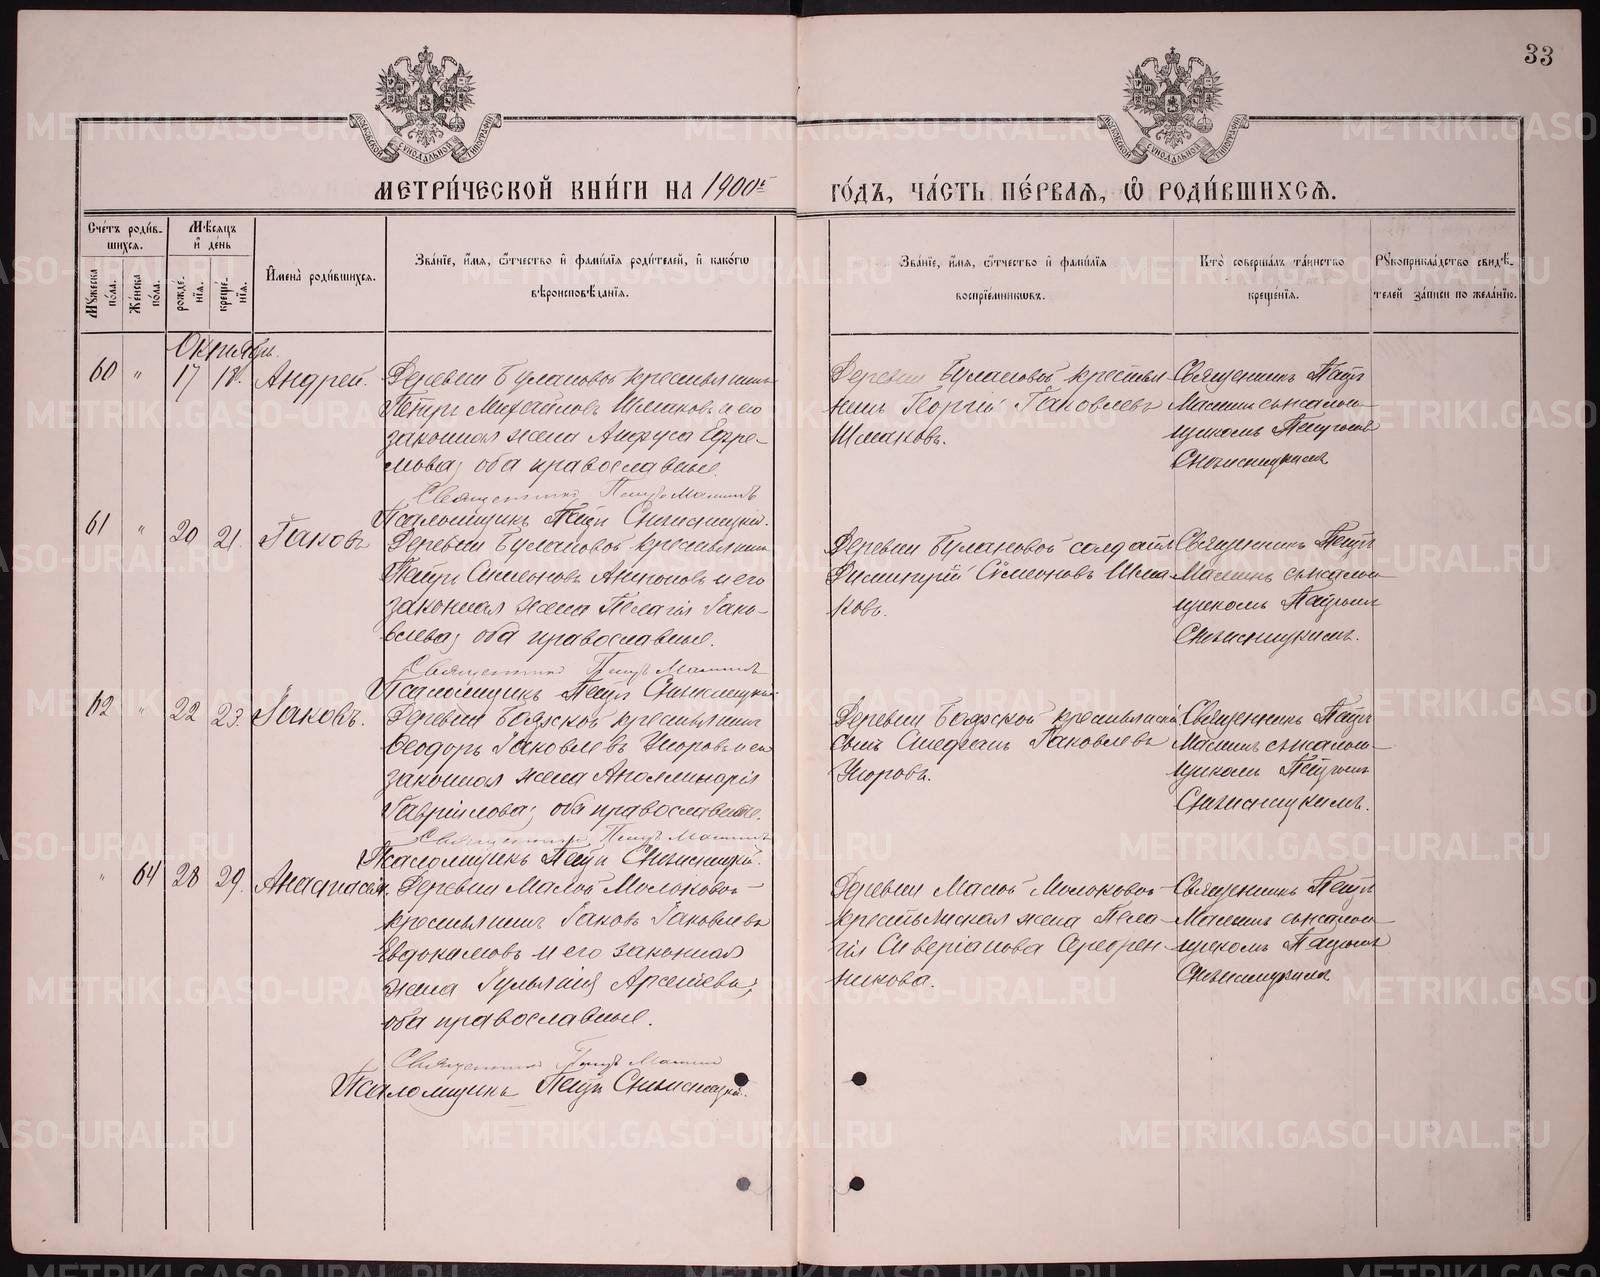 33
МЕТРИ́ЧЕСКОЙ КНИ́ГИ НА 1900й
ГО́ДЪ, ЧА́СТЬ ПЕ́РВАѦ, Ѡ РОДИ́ВШИХСѦ.
Сче́тъ роди́в-
шихсѧ.
Мѣ́сѧцъ
и҆ де́нь
Мꙋ́жеска
по́ла.
Же́нска
по́ла.
рожде́-
нїѧ.
креще́-
нїѧ.
И҆мена̀ роди́вшихсѧ.
Зва́нїе, и҆́мѧ, ѻ҆́тчество и҆ фами́лїѧ роди́телей, и҆ како́гѡ
вѣроисповѣ́данїѧ.
Зва́нїе, и҆́мѧ, ѻ҆́тчество и҆ фами́лїѧ
воспрїе́мникѡвъ.
Кто̀ соверша́лъ та́инство
креще́нїѧ.
Рꙋкоприкла́дство свидѣ́-
телей за́писи по жела́нїю.
Октябрь.
60 " 17 18. Андрей.
Деревни Булановой крестьянинъ
Петръ Михайловъ Шмаковъ и его
законная жена Анфуса Ефре-
мова; оба православные.
Священникъ Петръ Маминъ
Псаломщикъ Петръ
Деревни Булановой крестья-
нинъ Георгій Іаковлевъ
Шмаковъ.
Священникъ Петръ
Маминъ съ псалом-
щикомъ Петромъ
61 " 20 21. Іаковъ
Деревни Булановой крестьянинъ
Петръ Симеоновъ Антоновъ и его
законная жена Пелагія Іако-
влева; оба православные.
Священникъ Петръ Маминъ
Псаломщикъ Петръ
Деревни Булановой солдатъ
Димитрій Симеоновъ Шма-
ковъ.
Священникъ Петръ
Маминъ съ псалом-
щикомъ Петромъ
62 " 22 23. Іаковъ.
Деревни Боярской крестьянинъ
Ѳеодоръ Іаковлевъ Упоровъ и его
законная жена Аполлинарія
Гавріилова; оба православные.
Священникъ Петръ Маминъ
Псаломщикъ Петръ
Деревни Боярской крестьянскій
сынъ Стефанъ Іаковлевъ
Упоровъ.
Священникъ Петръ
Маминъ съ псалом-
щикомъ Петромъ
" 64 28 29. Анастасія.
Деревни Малой Молоковой
крестьянинъ Іаковъ Іаковлевъ
Евдокимовъ и его законная
жена Іульянія Арсеньева;
оба православные.
Священникъ Петръ Маминъ
Псаломщикъ Петръ
Деревни Малой Молоковой
крестьянская жена Пела-
гія Сиверіанова Серебрен-
никова.
Священникъ Петръ
Маминъ съ псалом-
щикомъ Петромъ
METRIKI.GASO-URAL.RU